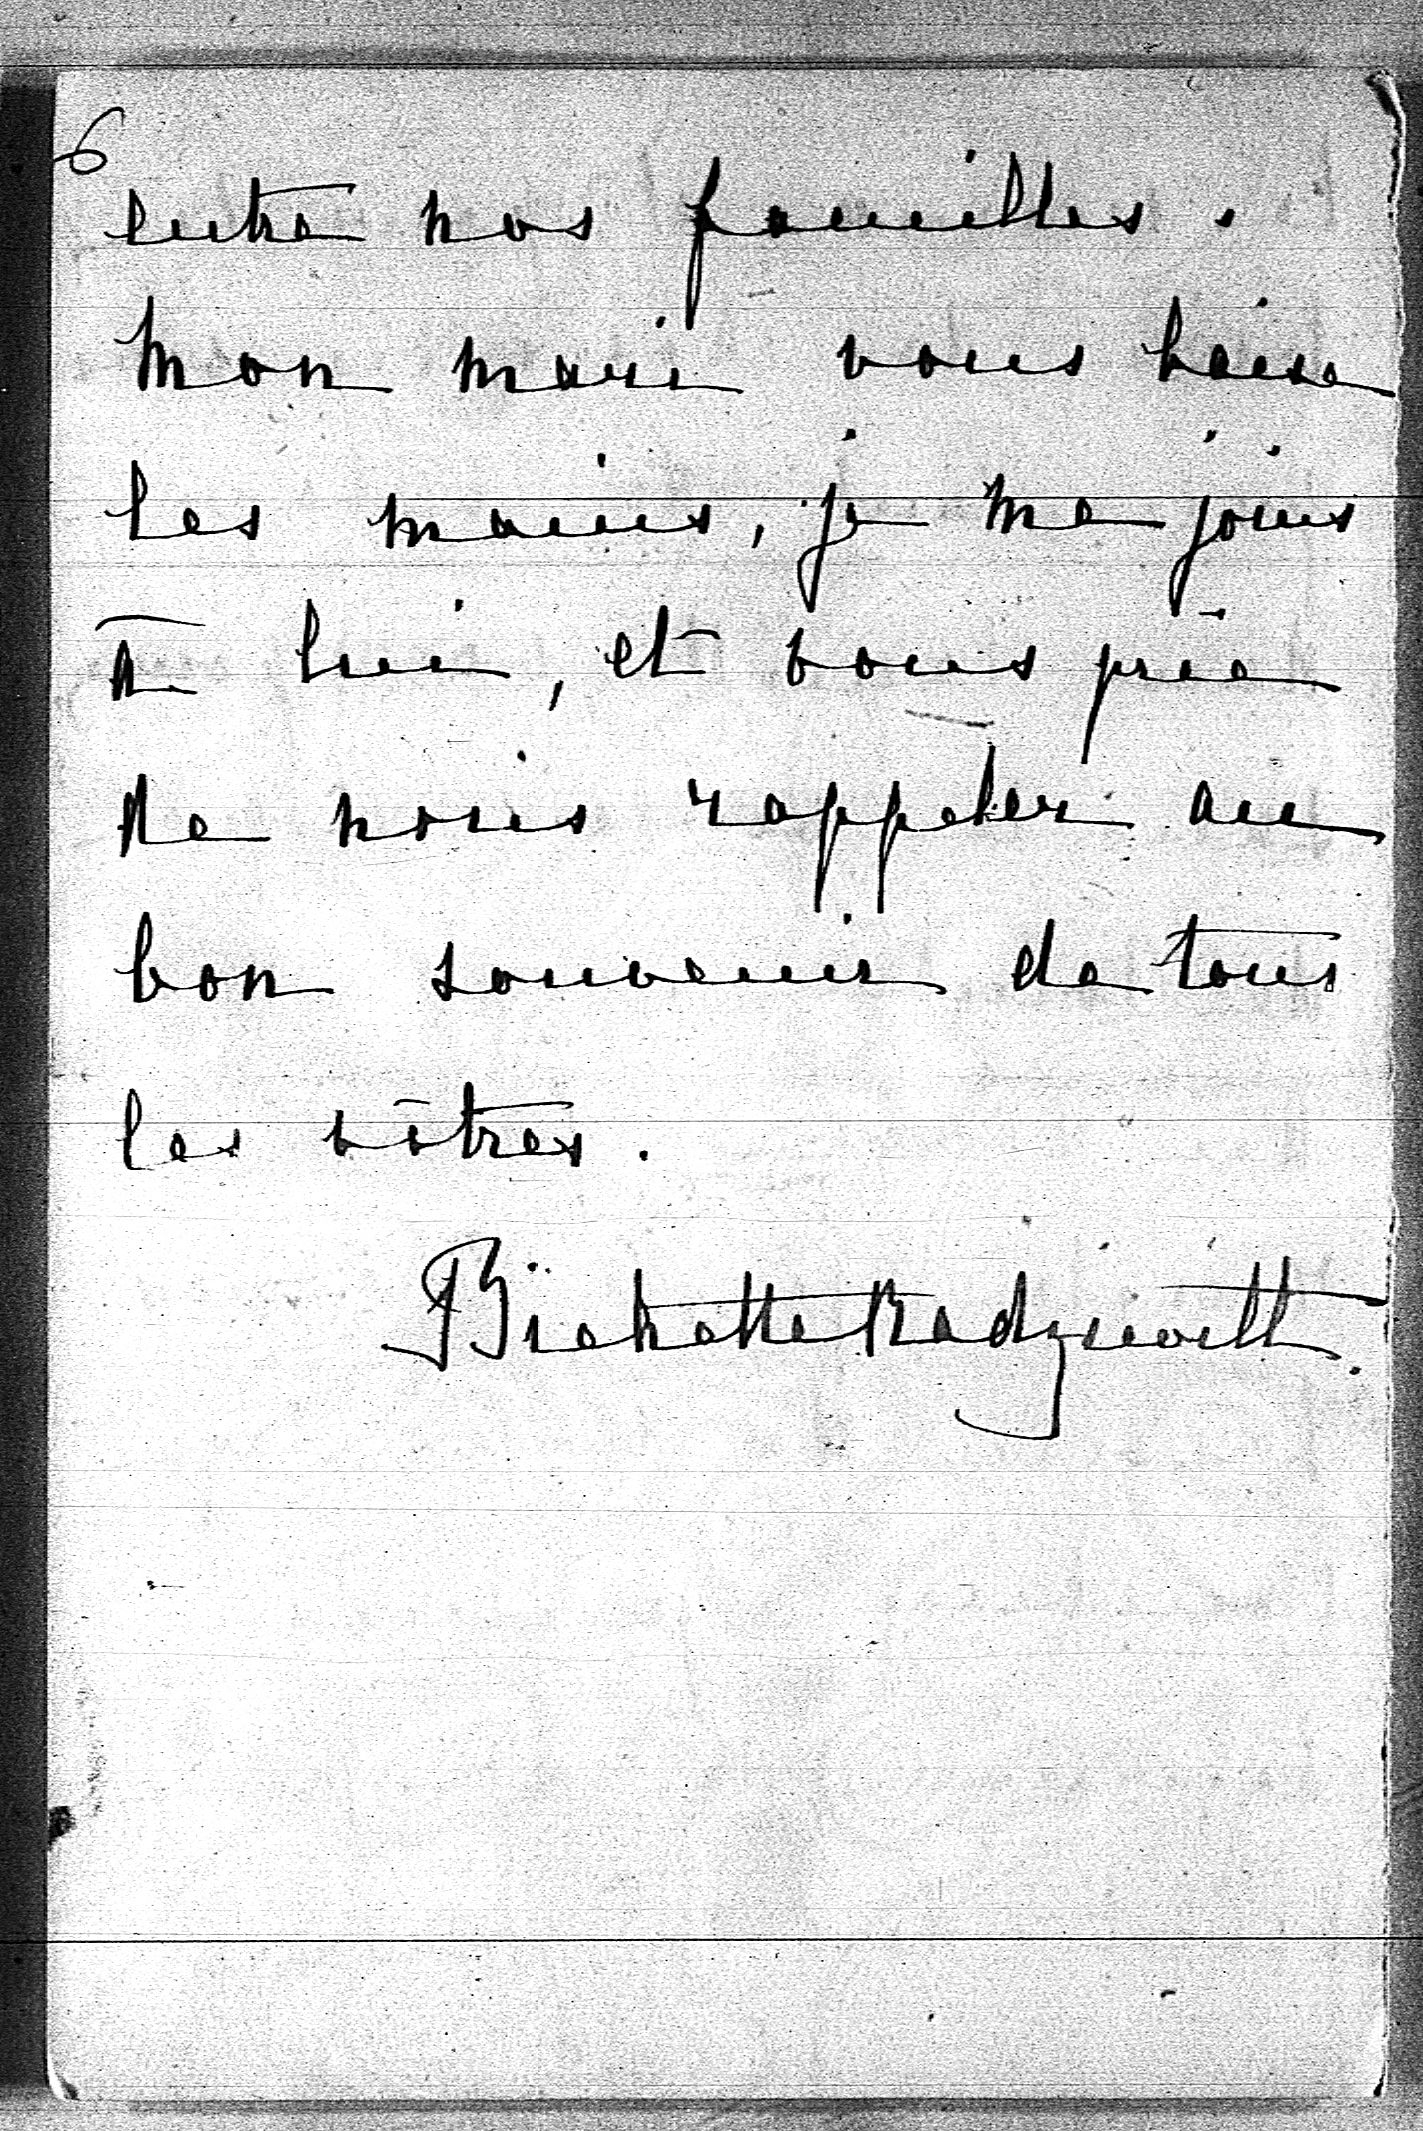 6
entre nos familles.
Mon mari vous baise
les mains, je me joins
à lui, et vous prie
de nous rappeler au
bon souvenir de tous
les vôtres.
Bichette Radziwill.